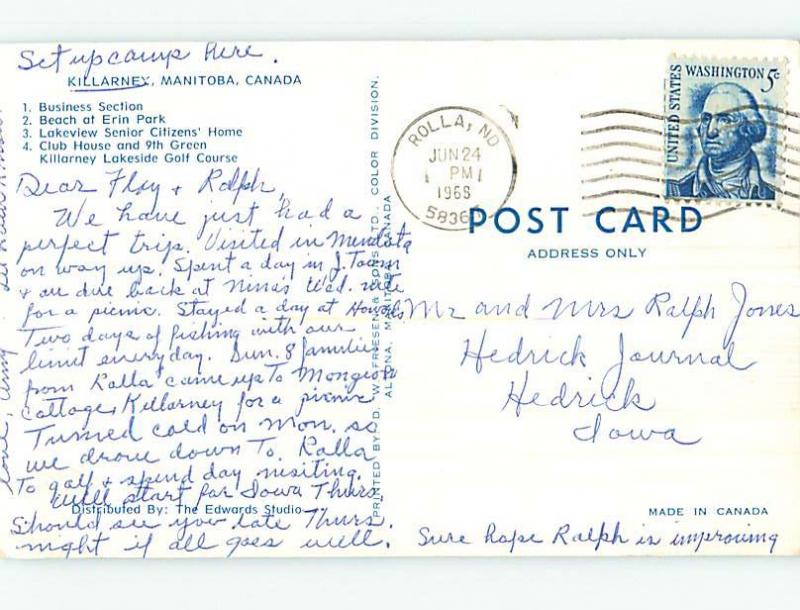 Set up camp here.
KILLARNEY, MANITOBA, CANADA
1. Business Section
2. Beach at Erin Park
3. Lakeview Senior Citizens' Home
4. Club House and 9th Green
Killarney Lakeside Golf Course
Dear Floy + Ralph,
We have just had a
perfect trip. Visited in Mendota
on way up. Spent a day in J. Town
+ are due back at Nina's Wed. nite
for a picnic. Stayed a day at Howards
Two days of fishing with our
limit everyday. Sun. 8 families
from Rolla came up to
cottage, Killarney for a picnic
Turned cold on Mon. so
we drove down to Rolla
to golf + spend day visiting.
Will start for Iowa Thurs.
Distributed By: The Edwards Studio
Should see you late Thurs.
night if all goes well.
Love, Amy
PRINTED BY D. W. FRIESEN & SONS LTD., COLOR DIVISION,
ALTONA, MANITOBA, CANADA
ROLLA, ND
JUN 24
PM
1968
UNITED STATES
WASHINGTON 5c
POST CARD
ADDRESS ONLY
Mr and Mrs Ralph Jones
Hedrick Journal
Hedrick
Iowa
MADE IN CANADA
Sure hope Ralph is improving